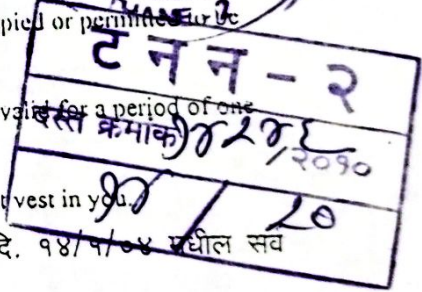 pied or permitted to be
ट न न - २
valid for a period of one
दस्त क्रमांक १४२४६/२०१०
t vest in you.
१४ / २०
दि. १४/१/०४ मधील सर्व